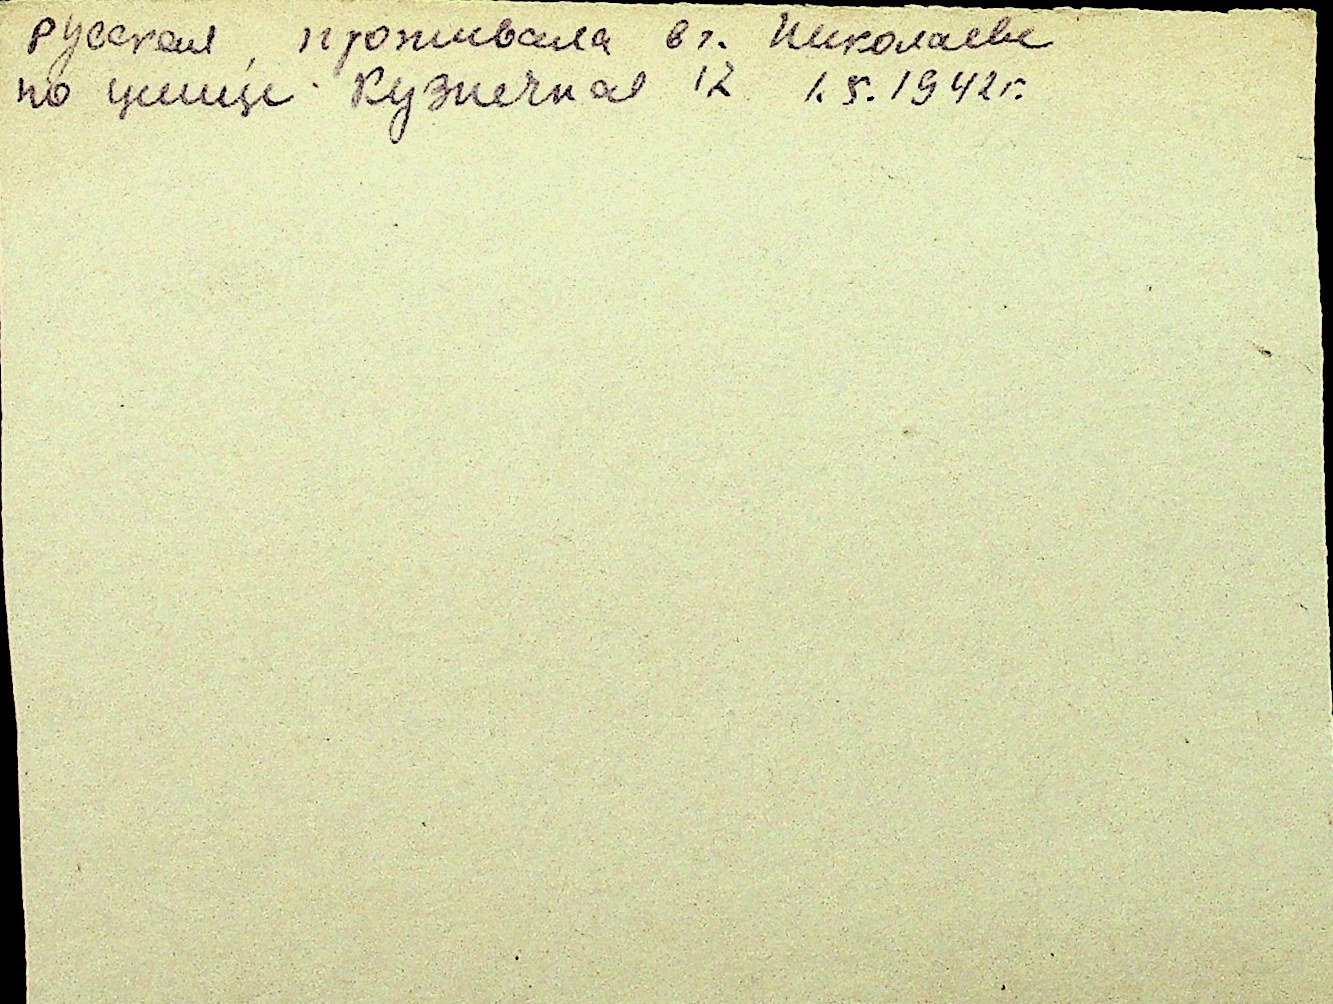 русская, проживала в г. Николаеве
по улице Кузнечная 12 1.5.1942г.